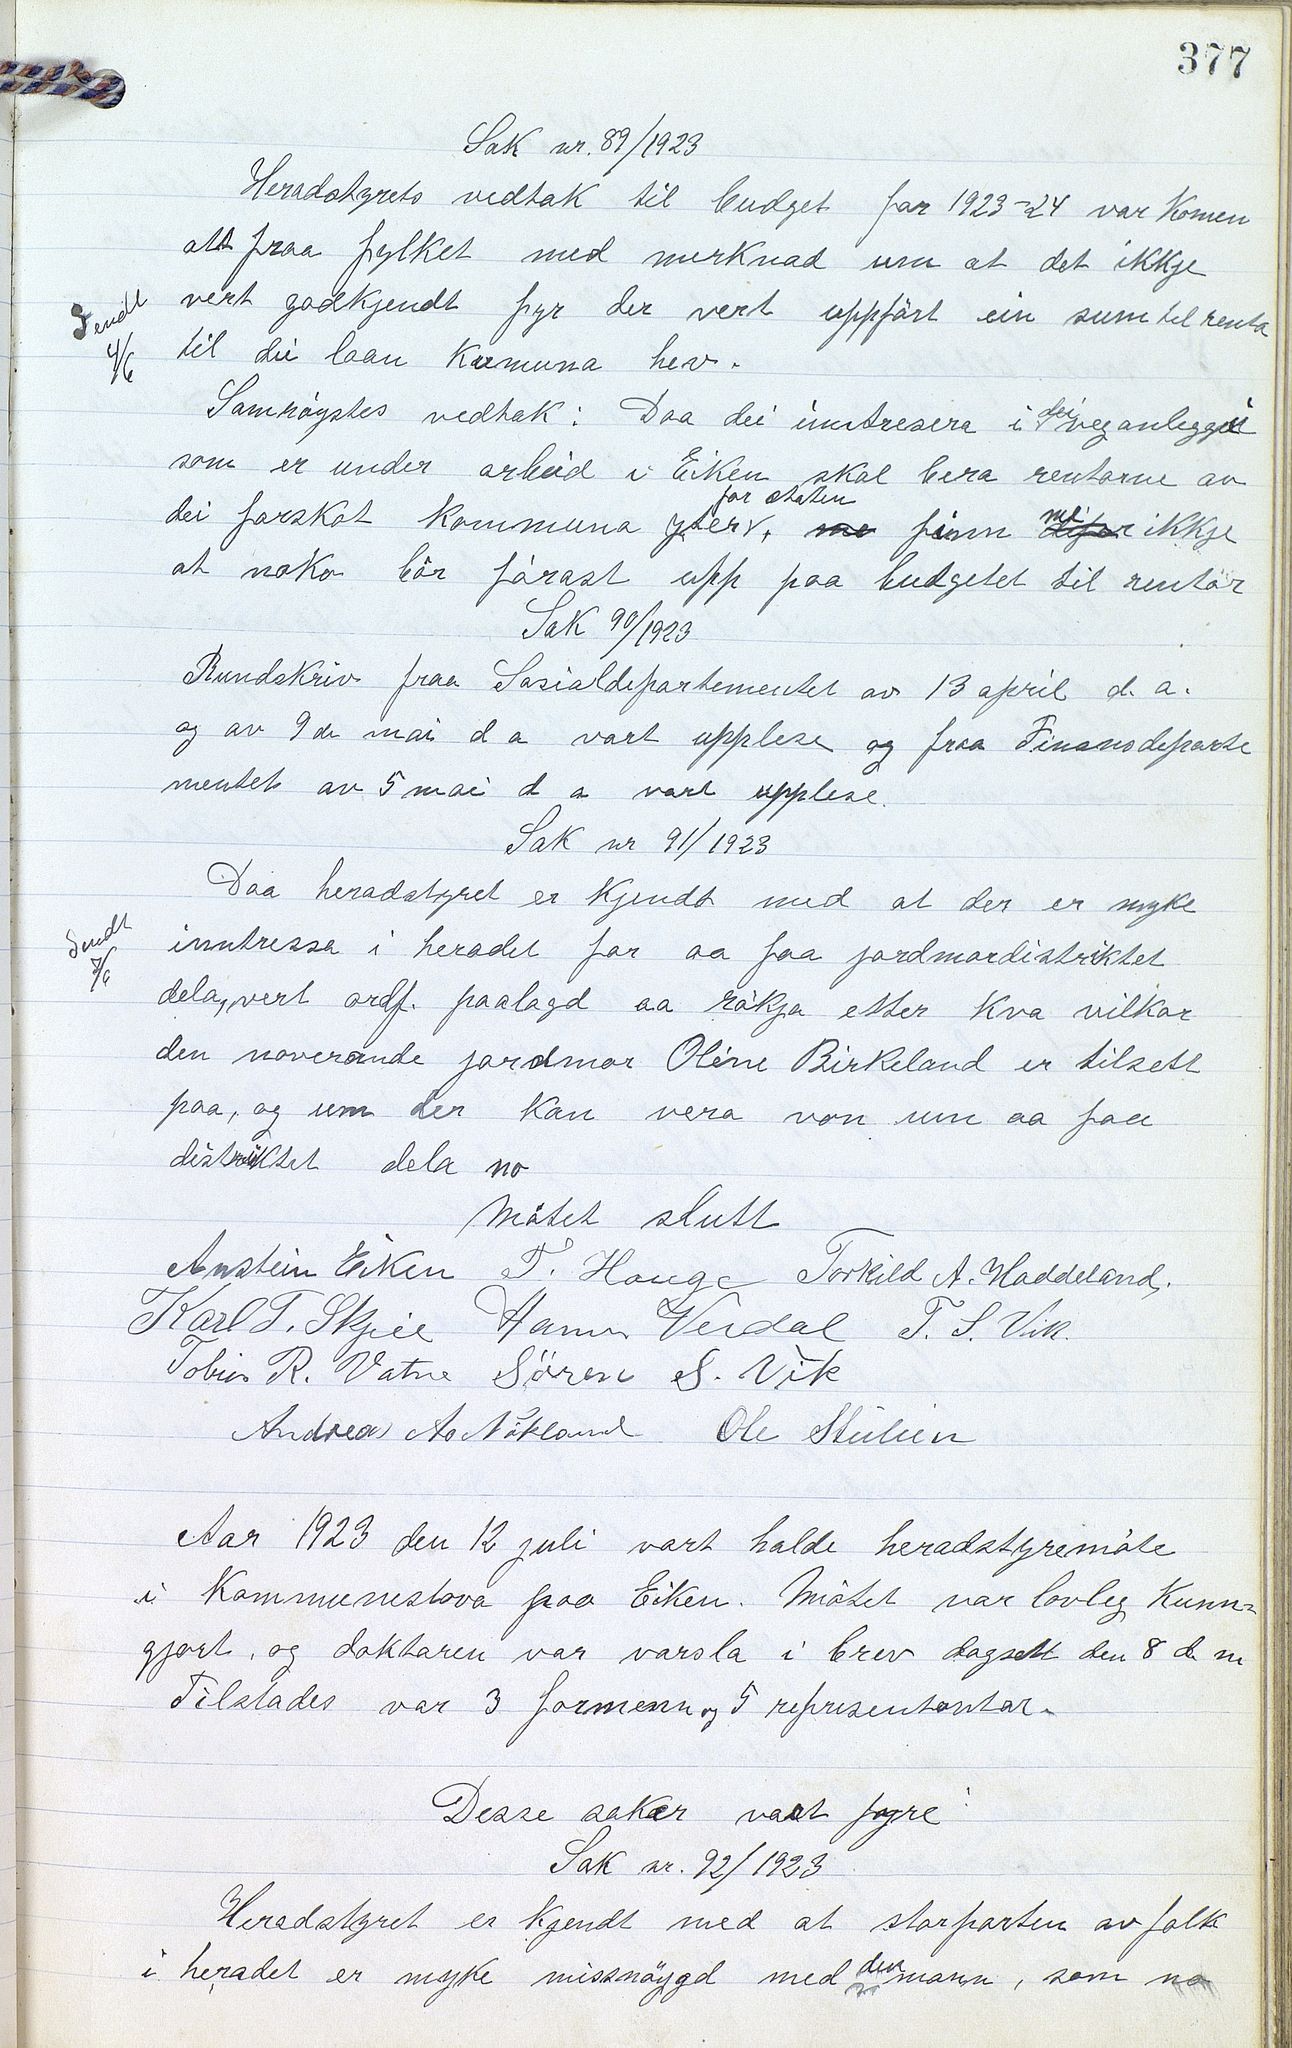 377
Sak nr. 89/1923
Heradstyrets vedtak til budget for 1923-24 var komen
att fraa fylket med merknad um at det ikkje
vert godkjendt fyr der vert uppfört ein sum til renta
til dei laan komuna hev.
Sendt
4/6
Samröystes vedtak: Daa dei inntresera i dei veganleggi
som er under arbeid i Eiken skal bera rentorne av
dei forskot kommuna yter for staten, me finn me ikkje
at noko bör förast upp paa budgetet til rentor
Sak 90/1923
Rundskriv fraa Sosialdepartementet av 13 april d. a.
og av 9 de mai d a vart upplese og fraa Finansdeparte
mentet av 5 mai d a vart upplese.
Sak nr 91/1923
Daa heradstyret er kjendt med at der er myke
inntressa i heradet for aa faa jordmordistriktet
dela, vert ordf. paalagd aa rökja etter kva vilkor
den noverande jordmor Oline Birkeland er tilsett
paa, og um der kan vera von um aa faa
distriktet dela no
Sendt
7/6
Mötet slutt
Anstein Eiken T. Hauge Torkild A. Haddeland.
Karl T. Skjeie Hans Verdal T. S. Vik.
Tobias R. Vatne Sören S. Vik
Andreas A. Nökland Ole Stulien
Aar 1923 den 12 juli vart halde heradstyremöte
i Kommunestova paa Eiken. Mötet var lovleg kunn-
gjort, og doktaren var varsla i brev dagsett den 8 d. m
Tilstades var 3 formenn og 5 representantar.
Desse saker vart fyre:
Sak nr. 92/1923
Heradstyret er kjendt med at storparten av folk
i heradet er myke missnöygd med den mann, som no